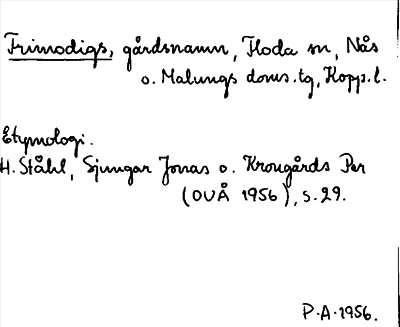 Frimodigs, gårdsnamn, Floda sn, Nås
o. Malungs doms.tg, Kopp.l.
Etymologi.
H. Ståhl, Sjungar Jonas o. Krongårds Per
(OUÅ 1956), s. 29.
P.A. 1956.